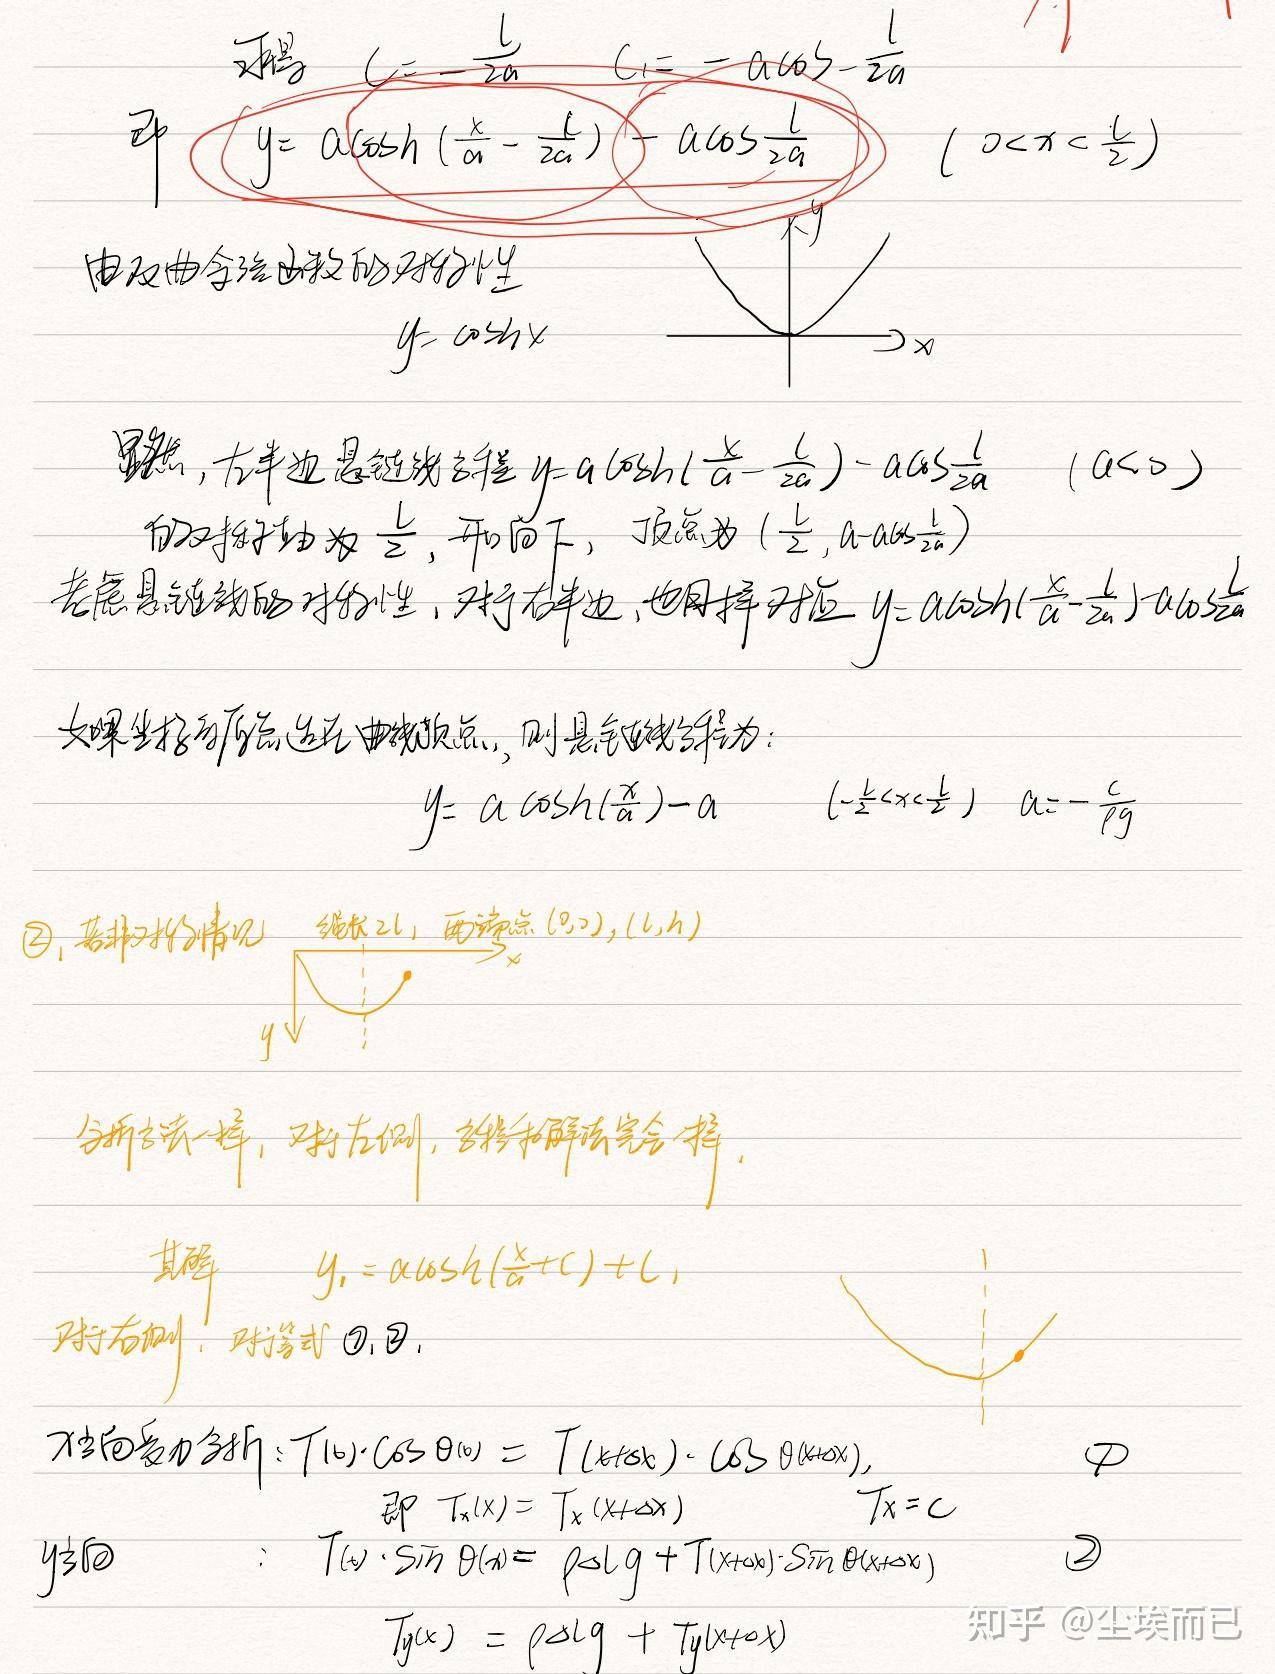 可得 C = -l/2a C₁ = - a cos - l/2a
即 y = a cosh (x/a - l/2a) - a cos l/2a (0<x<l/2)
由双曲余弦函数的对称性
y = cosh x
y
x
显然,左半边悬链线方程 y = a cosh(x/a - l/2a) - a cos l/2a (a<0)
的对称轴为 l/2, 开口向下, 顶点为 (l/2, a-a cos l/2a)
考虑悬链线的对称性,对于右半边,也同样对应 y = a cosh(x/a - l/2a) - a cos l/2a
如果坐标系原点选在曲线顶点,则悬链线方程为:
y = a cosh(x/a) - a (-l/2<x<l/2) a = - c/ρg
②, 若非对称情况 绳长2l, 两端点 (0,0), (l,h)
x
y
分析方法一样, 对于左侧, 方程和解法完全一样.
其解 y₁ = a cosh(x/a + C) + C₁
对于右侧, 对于等式 ①, ②,
x方向受力分析: T(x)·cosθ(x) = T(x+Δx)·cosθ(x+Δx), ①
即 Tx(x) = Tx(x+Δx) Tx = C
y方向 : T(x)·sinθ(x) = ρΔl g + T(x+Δx)·sinθ(x+Δx) ②
Ty(x) = ρΔl g + Ty(x+Δx)
知乎 @尘埃而已